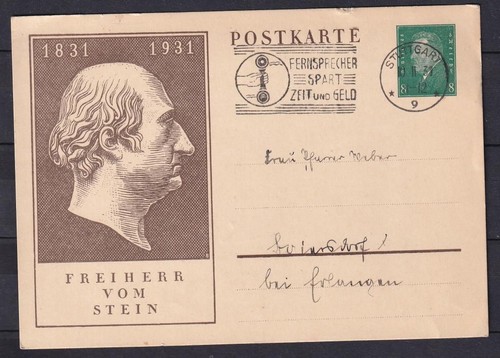 1831 1931
FREIHERR
VOM
STEIN
POSTKARTE
FERNSPRECHER
SPART
ZEIT UND GELD
STUTTGART
9
8 8
Frau Pfarrer Weber
Baiersdorf
bei Erlangen